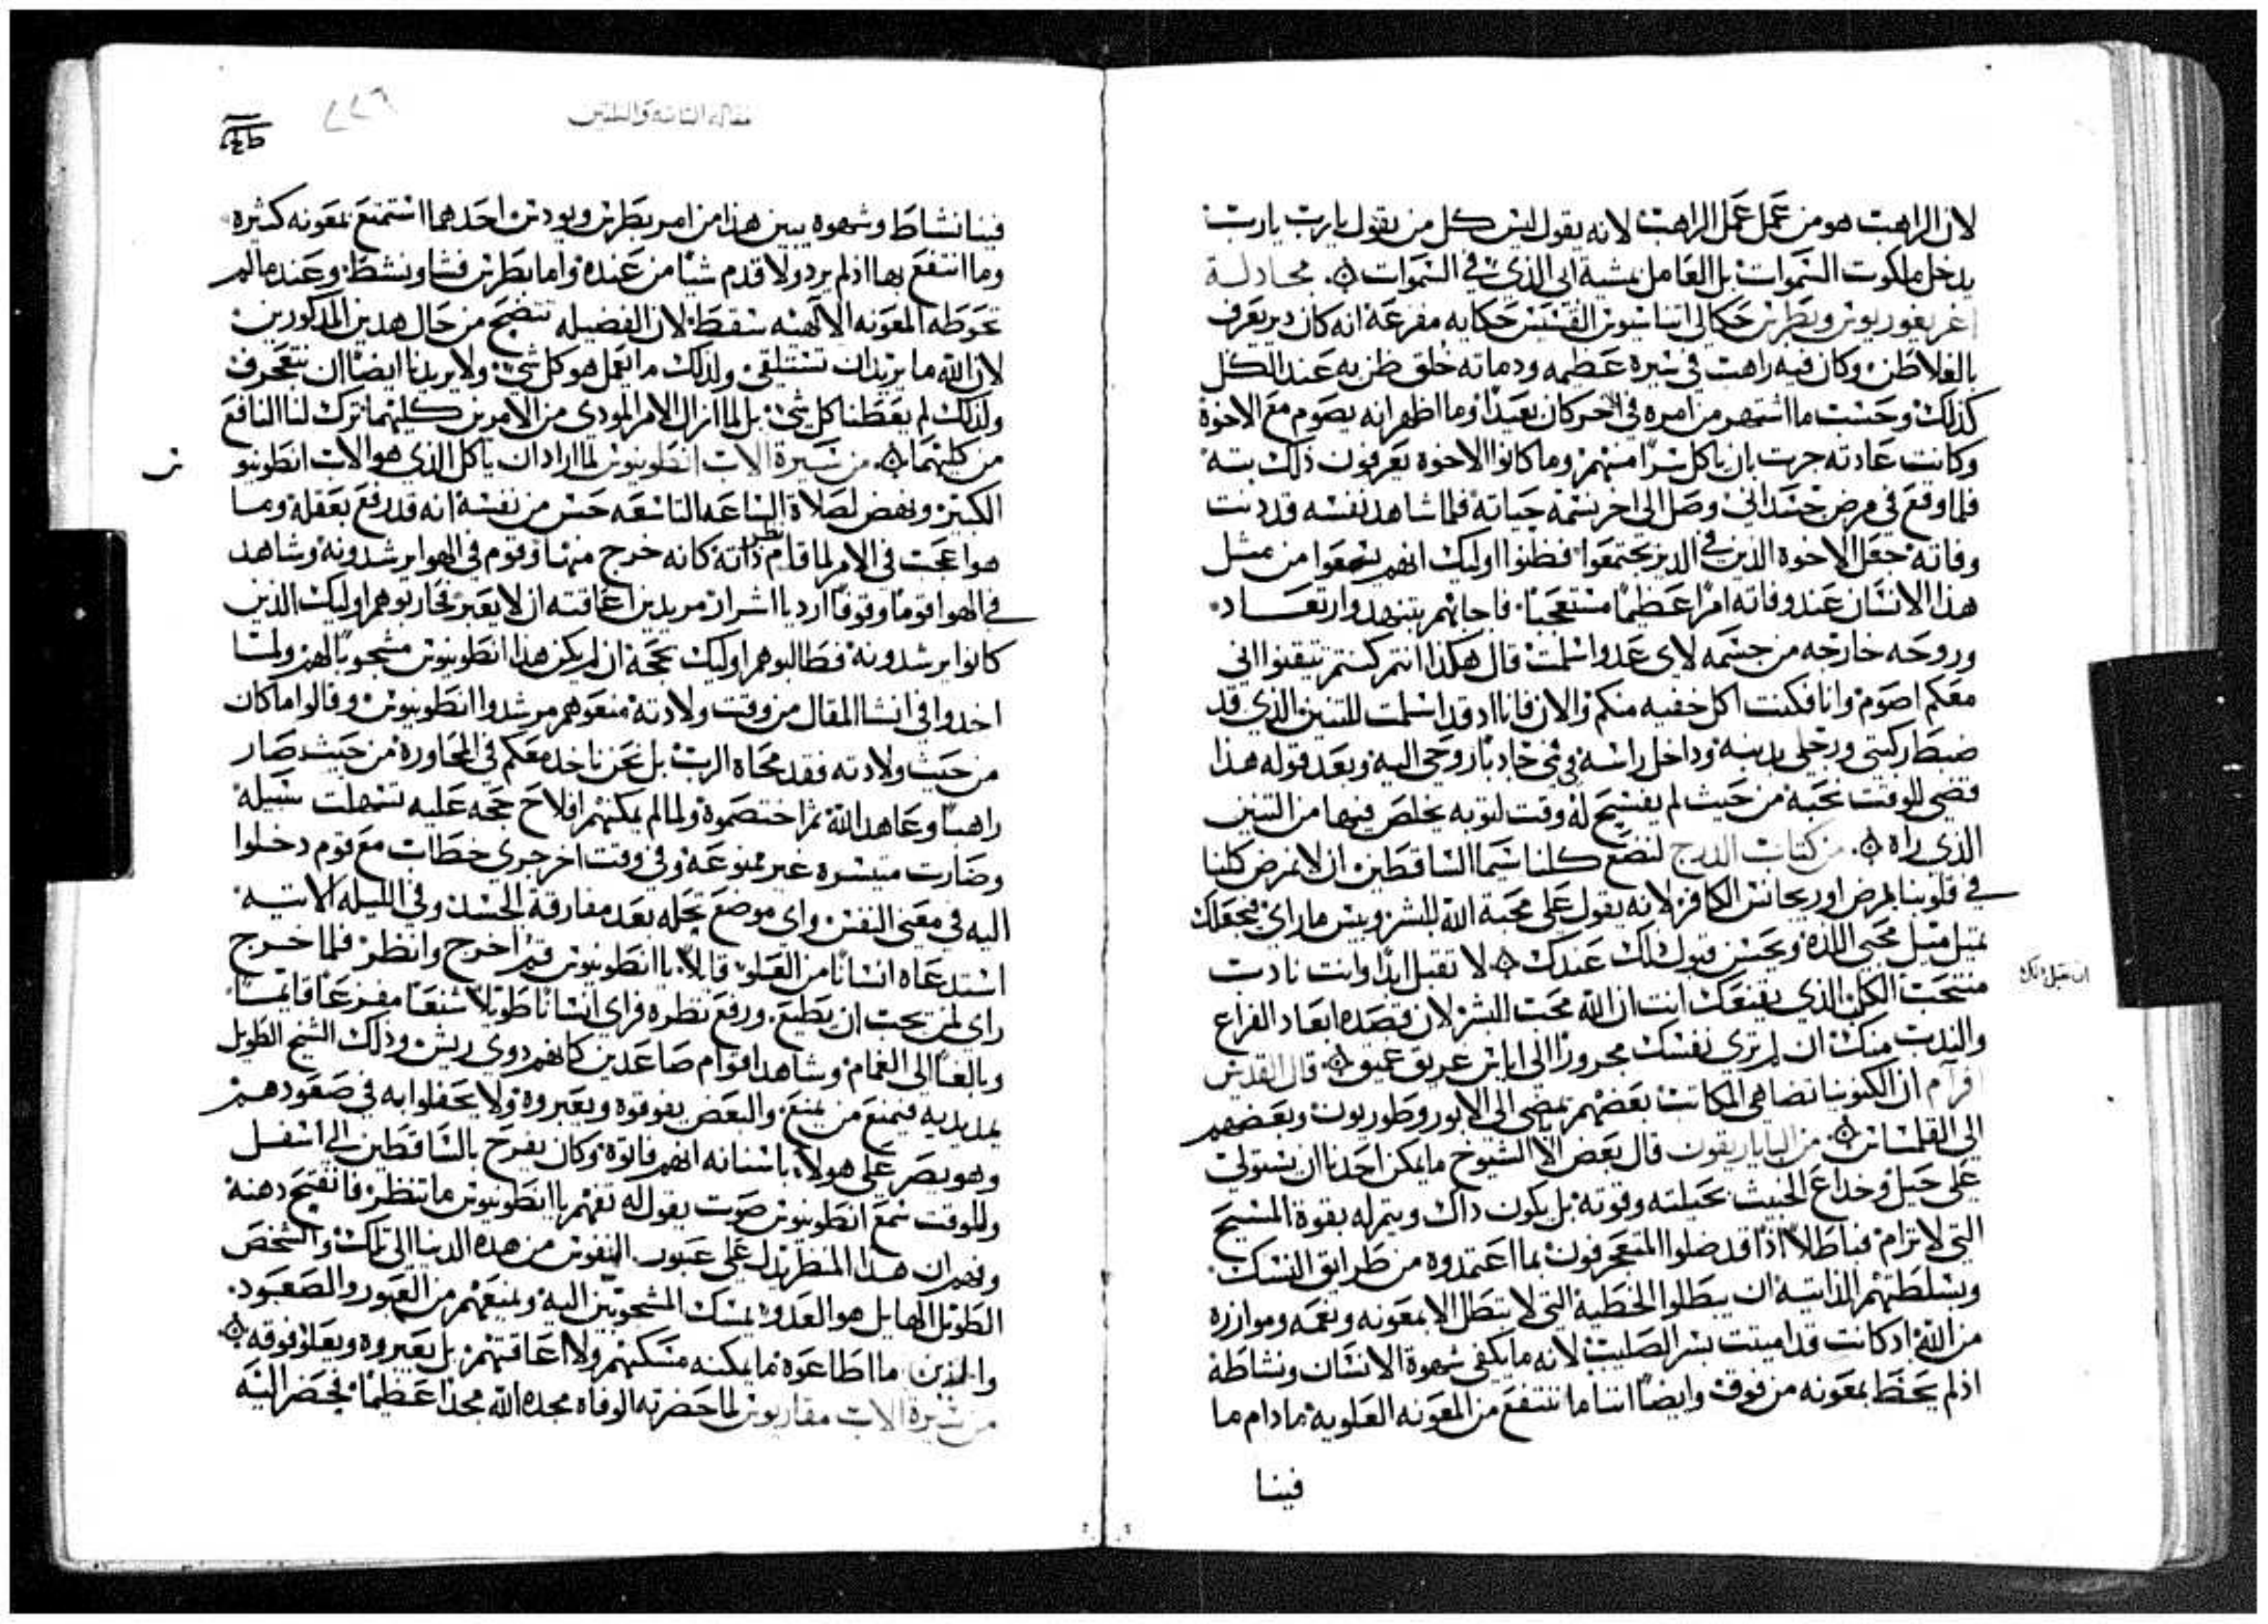 لان الراهب هو من عَمل عَمل الراهب لانه يقول ليس كل من يقول يارب يارب
يدخل ملكوت السموات بل العامل مشية ابي الذي في السموات ۞ مجادلة
اغريغوريوس وبطرس حكا لي اتناسيوس القسيس حكايه مفزعة انه كان دير يعرف
بالغلاطن وكان فيه راهب في سيره عظيمه ودماثه خلق ظن به عند الكل
كذلك وحسب ما اشتهر من امره في الاخر كان بعيدًا وما اظهر انه يصوم مع الاخوة
وكانت عادته جرت بان ياكل سرًا منهم وما كانوا الاخوه يعرفون ذلك بته
فلما وقع في مرض جسداني وصل الى اخر نسمة حياته فلما شاهد نفسه قد دنت
وفاته جعل الاخوه الذين في الدير يجتمعوا فظنوا اوليك انهم يسمعوا من مثل
هذا الانسان عند وفاته امرًا عظيمًا مستعجبًا فاجابهم بتنهد وارتعاد
وروحه خارجه من جسمه لاي عدو اسلمت قال هكذا انتم كنتم تيقنوا اني
معكم اصوم وانا فكنت اكل خفيه منكم والان فانا اد قد اسلمت للتنين الذي قد
ضبط ركبتي ورجلي بدنبه وداخل راسه في في جادبًا روحي اليه وبعد قوله هذا
قضى للوقت نحبه من حيث لم يفسح له وقت لتوبه يخلص فيها من التنين
الذي راه ۞ من كتاب الدرج لنضع كلنا سيما الساقطين ان لا نمرض كلنا
في قلوبنا بمرض اوريجانس الكافر لانه يقول على محبة الله للبشر وبيس ما راى فيجعلك
تميل ميل محبي اللده ويحسن قبول ذلك عندك ۞ لا تقبل ابدًا وانت نادب
ان تقبل ذلك
منتحب الكلب الذي يقنعك انت ان الله محب للبشر لان قصده ابعاد الفزاع
والندب منك ان لم ترى نفسك مجرورًا الى اياس عريق عميق ۞ قال القديس
افرآم ان الكنوبيا تضاهي المكاتب بعضهم يمضي الى الابورو طوريون وبعضهم
الى القلسانس ۞ من الباباريقون قال بعض الا الشيوخ ما يمكن احدنا ان يستولي
على حيل وخداع الخبيث بحيلته وقوته بل يكون داك ويتم له بقوة المسيح
التي لا ترام فباطلاً اذًا قد ضلوا المتعجرفون بما اعتمدوه من طرايق النسك
وبسلطتهم الذاتيه ان يبطلوا الخطية التي لا تبطل الا بمعونه ونعمه وموازره
من الله اد كانت قد اميتت بسر الصليب لانه ما يكفي شهوة الانسان ونشاطه
اذ لم يحظ بمعونه من فوق وايضًا اننا ما ننتفع من المعونه العلويه ما دام ما
فينا
مقاله الثامنه والثلثين
٢٦٦
فينا نشاط وشهوه يبين هذا من امر بطرس ويودس احدهما استمتع بمعونه كثيره
وما انتفع بها اذ لم يرد ولا قدم شيًا من عنده واما بطرس فشا ونشط وعند ما لم
تحوطه المعونه الالهيه سقط لان الفضيله تتضح من حال هدين المدكورين
لان الله ما يريد ان نستلقي ولذلك ما يفعل هو كل شي ولا يريدنا ايضًا ان نتعجرف
ولذلك لم يعطنا كل شي بل لما ازال الامر المودي من الامرين كليهما ترك لنا النافع
من كليهما ۞ من سيرة الاب انطونيوس لما اراد ان ياكل الذي هو الاب انطونيو
س
الكبير ونهض لصلاة الساعه التاسعه حس من نفسه انه قد رفع بعقله وما
هو اعجب في الامر لما قام نظر ذاته كانه خرج منها وقوم في الهوا يرشدونه وشاهد
في الهوا قومًا وقوفًا اردياا اشرار مريدين اعاقته ان لا يعبر فحاربوهم اوليك الذين
كانوا يرشدونه فطالبوهم اوليك بحجه ان لم يكن هذا انطونيوس مشجوبًا لهم ولما
اخدوا في انشا المقال من وقت ولادته منعوهم مرشدوا انطونيوس وقالوا اما كان
من حيث ولادته فقد محاه الرب بل نحن ناخد معكم في المحاورة من حيث صار
راهبًا وعاهد الله ثم اختصموه ولما لم يمكنهم افلاح حجه عليه تسهلت سبيله
وصارت متيسره غير ممنوعه وفي وقت اخر جرى خطاب مع قوم دخلوا
اليه في معنى النفس واي موضع تحله بعد مفارقة الجسد وفي الليله الاتيه
استدعاه انسانًا من العلو قايلاً يا انطونيوس قم اخرج وانظر فلما خرج
راى لمن يجب ان يطيع ورفع نظره فراى انسانًا طويلاً شنعًا مفزعًا قايمًا
وبالغًا الى الغمام وشاهد اقوام صاعدين كانهم دوي ريش وذلك الشيخ الطويل
يمد يديه فيمنع من يمنع والبعض يفوقوه ويعبروه ولا يحفلوا به في صعودهم
وهو يصر على هولاء باسنانه انهم فاتوه وكان يفرح بالساقطين الى اسفل
وللوقت سمع انطونيوس صوت يقول له تفهم يا انطونيوس ما تنظر فانفتح دهنه
وفهم ان هذا المنظر يدل على عبور النفوس من هده الدنيا الى تلك والشخص
الطويل الهايل هو العدو يمسك المشجوبين اليه ويمنعهم من العبور والصعود
والذين ما اطاعوه ما يمكنه مسكهم ولا اعاقتهم بل يعبروه ويعلو فوقه ۞
من سيرة الاب مقاريوس لما حضرته الوفاه مجده الله مجدًا عظيمًا فحضر اليه